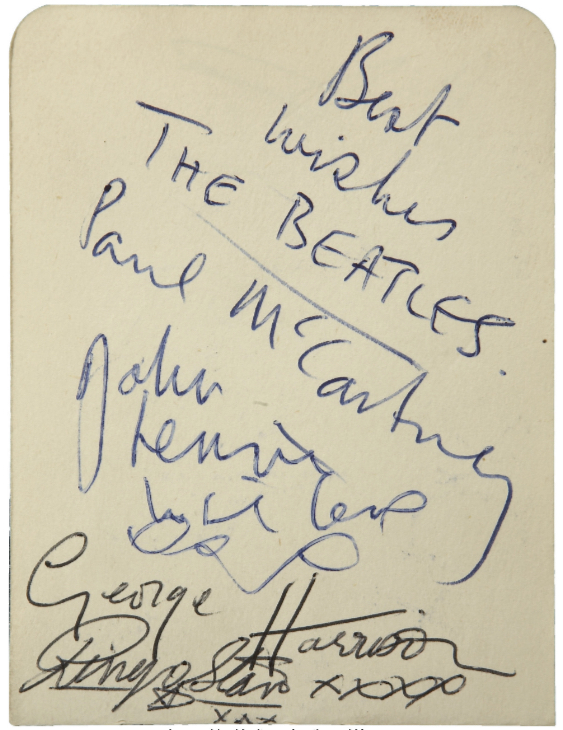 Best
wishes
THE BEATLES.
Paul McCartney
John
Lennon
with love
George Harrison
Ringo Starr xxoxo
xxx